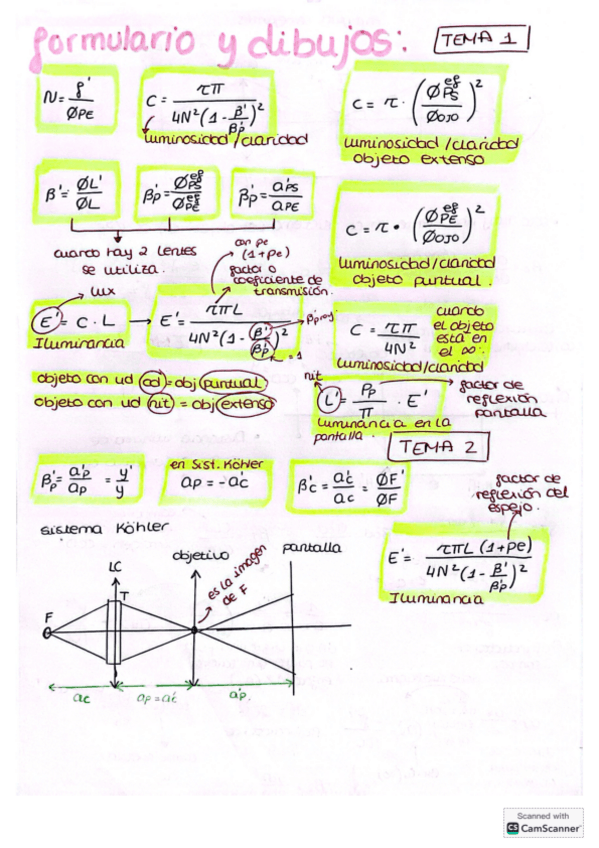 formulario y dibujos: TEMA 1
N = f' / ØPE
C = τπ / 4N²(1 - β'/β'p)²
luminosidad/claridad
C = τ · (Ø^ef PS / ØOJO)²
luminosidad/claridad
objeto extenso
β' = ØL' / ØL
β'p = Ø^ef PS / Ø^ef PE
β'p = a'PS / aPE
cuando hay 2 lentes
se utiliza.
C = τ · (Ø^ef PE / ØOJO)²
luminosidad/claridad
objeto puntual.
con ρe
(1+ρe)
factor o
coeficiente de
transmisión.
lux
E' = C · L → E' = τπL / 4N²(1 - β'/β'p)²
β'proy.
= 1
Iluminancia
C = τπ / 4N²
cuando
el objeto
está en
el ∞.
luminosidad/claridad
objeto con ud cd = obj puntual
objeto con ud nit = obj extenso
nit
L' = ρp / π · E'
factor de
reflexión
pantalla
luminancia en la
pantalla.
TEMA 2
β'p = a'p / ap = y' / y
en Sist. Köhler
ap = -a'c
β'c = a'c / ac = ØF' / ØF
factor de
reflexión del
espejo.
E' = τπL (1+ρe) / 4N²(1 - β'/β'p)²
Iluminancia
sistema Köhler
LC
T
objetivo
es la imagen
de F
pantalla
F
ac
ap = a'c
a'p.
Scanned with
CS CamScanner